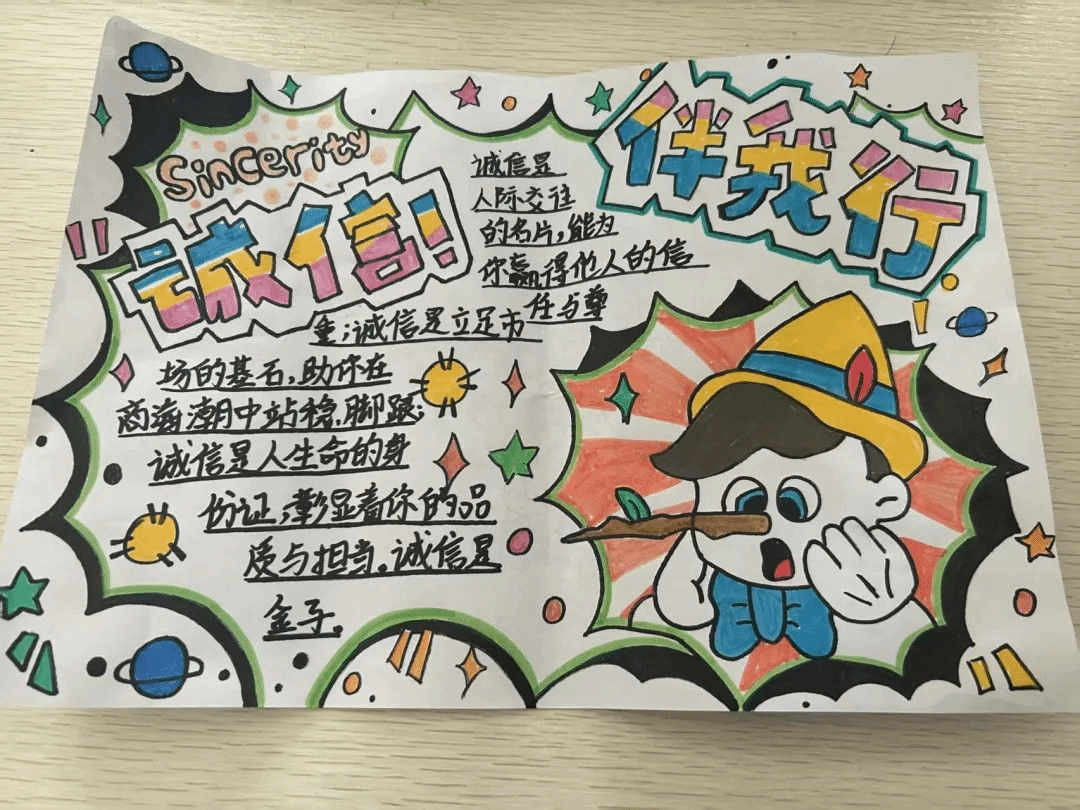 Sincerity
诚信!
伴我行
诚信是
人际交往
的名片,能为
你赢得他人的信
任与尊
重;诚信是立足市
场的基石,助你在
商海潮中站稳脚跟;
诚信是人生命的身
份证,彰显着你的品
质与担当。诚信是
金子。